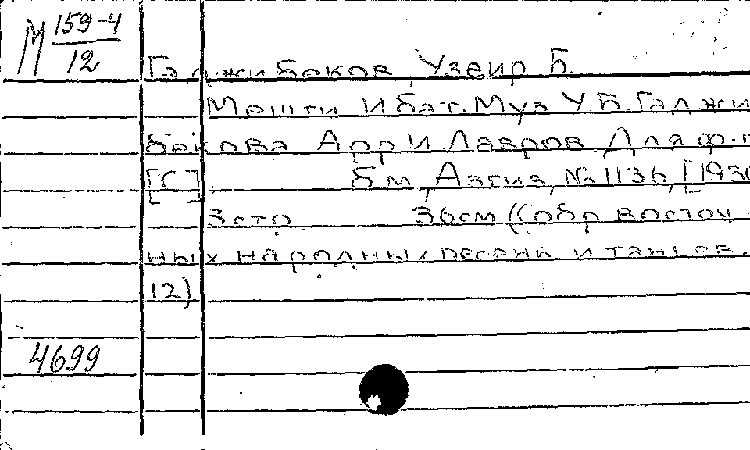 М 159-4
12
Гаджибеков, Узеир Б.
Мешти Ибат. Муз У. Б. Гаджи
бекова Арр И Лавров Для ф-п
[С] б м, Азгиз, № 1136, [193
3 стр 36см (Собр восточ
ных народных песень и танцев.
12)
4699